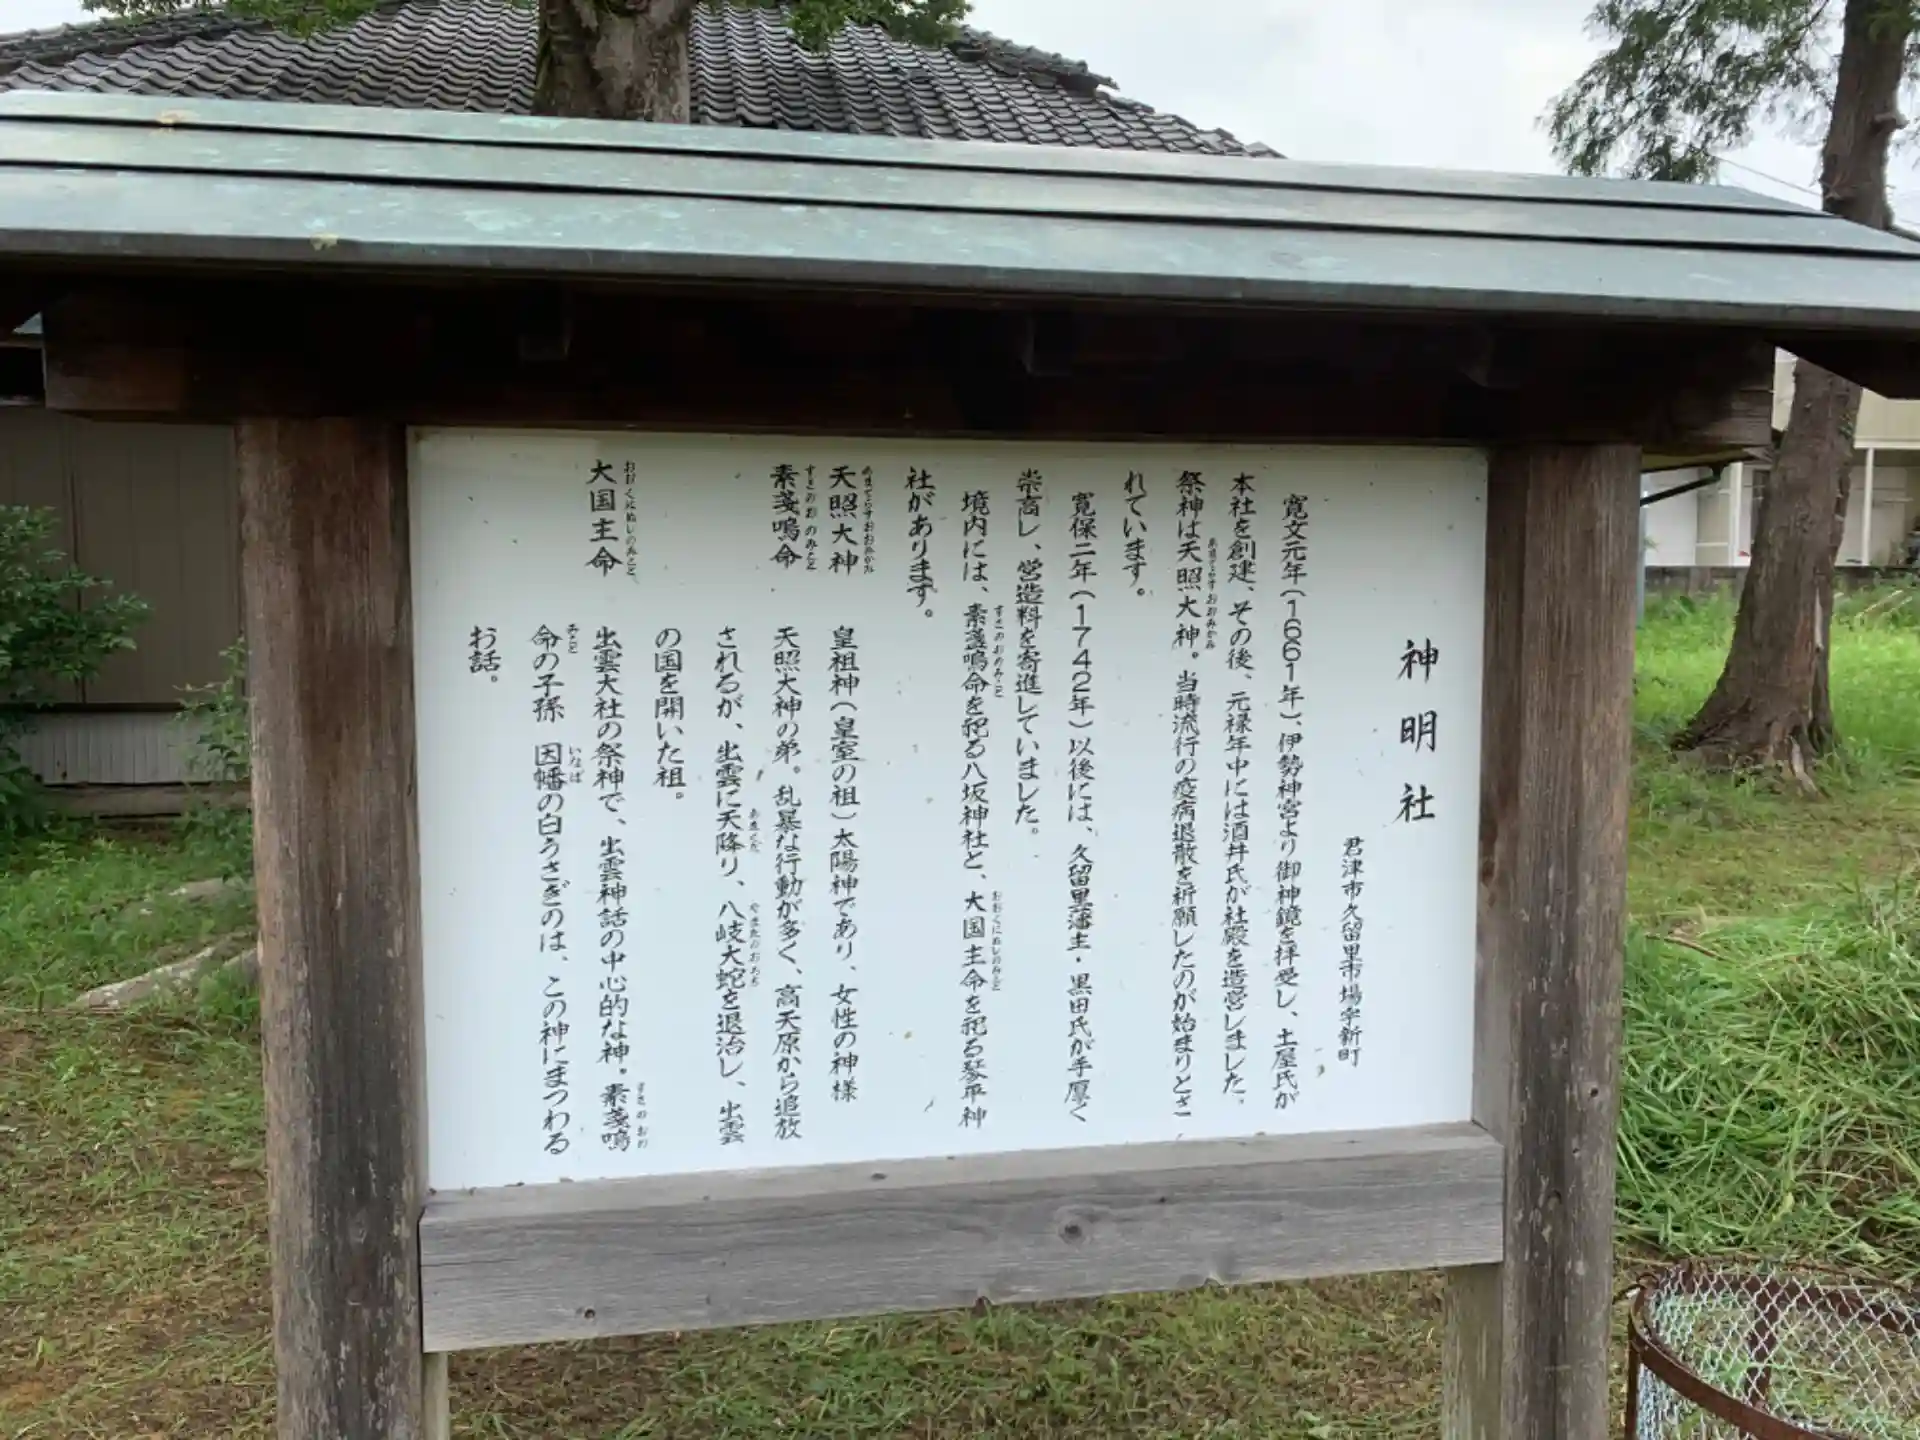 神明社
君津市久留里市場字新町
寛文元年(1661年)、伊勢神宮より御神鏡を拝受し、土屋氏が
本社を創建、その後、元禄年中には酒井氏が社殿を造営しました。
祭神は天照大神。当時流行の疫病退散を祈願したのが始まりとさ
れています。
寛保二年(1742年)以後には、久留里藩主・黒田氏が手厚く
崇高し、営造料を寄進していました。
境内には、素盞嗚命を祀る八坂神社と、大国主命を祀る琴平神
社があります。
天照大神 皇祖神(皇室の祖)太陽神であり、女性の神様
素盞嗚命 天照大神の弟。乱暴な行動が多く、高天原から追放
されるが、出雲に天降り、八岐大蛇を退治し、出雲
の国を開いた祖。
大国主命 出雲大社の祭神で、出雲神話の中心的な神。素盞嗚
命の子孫 因幡の白うさぎのは、この神にまつわる
お話。